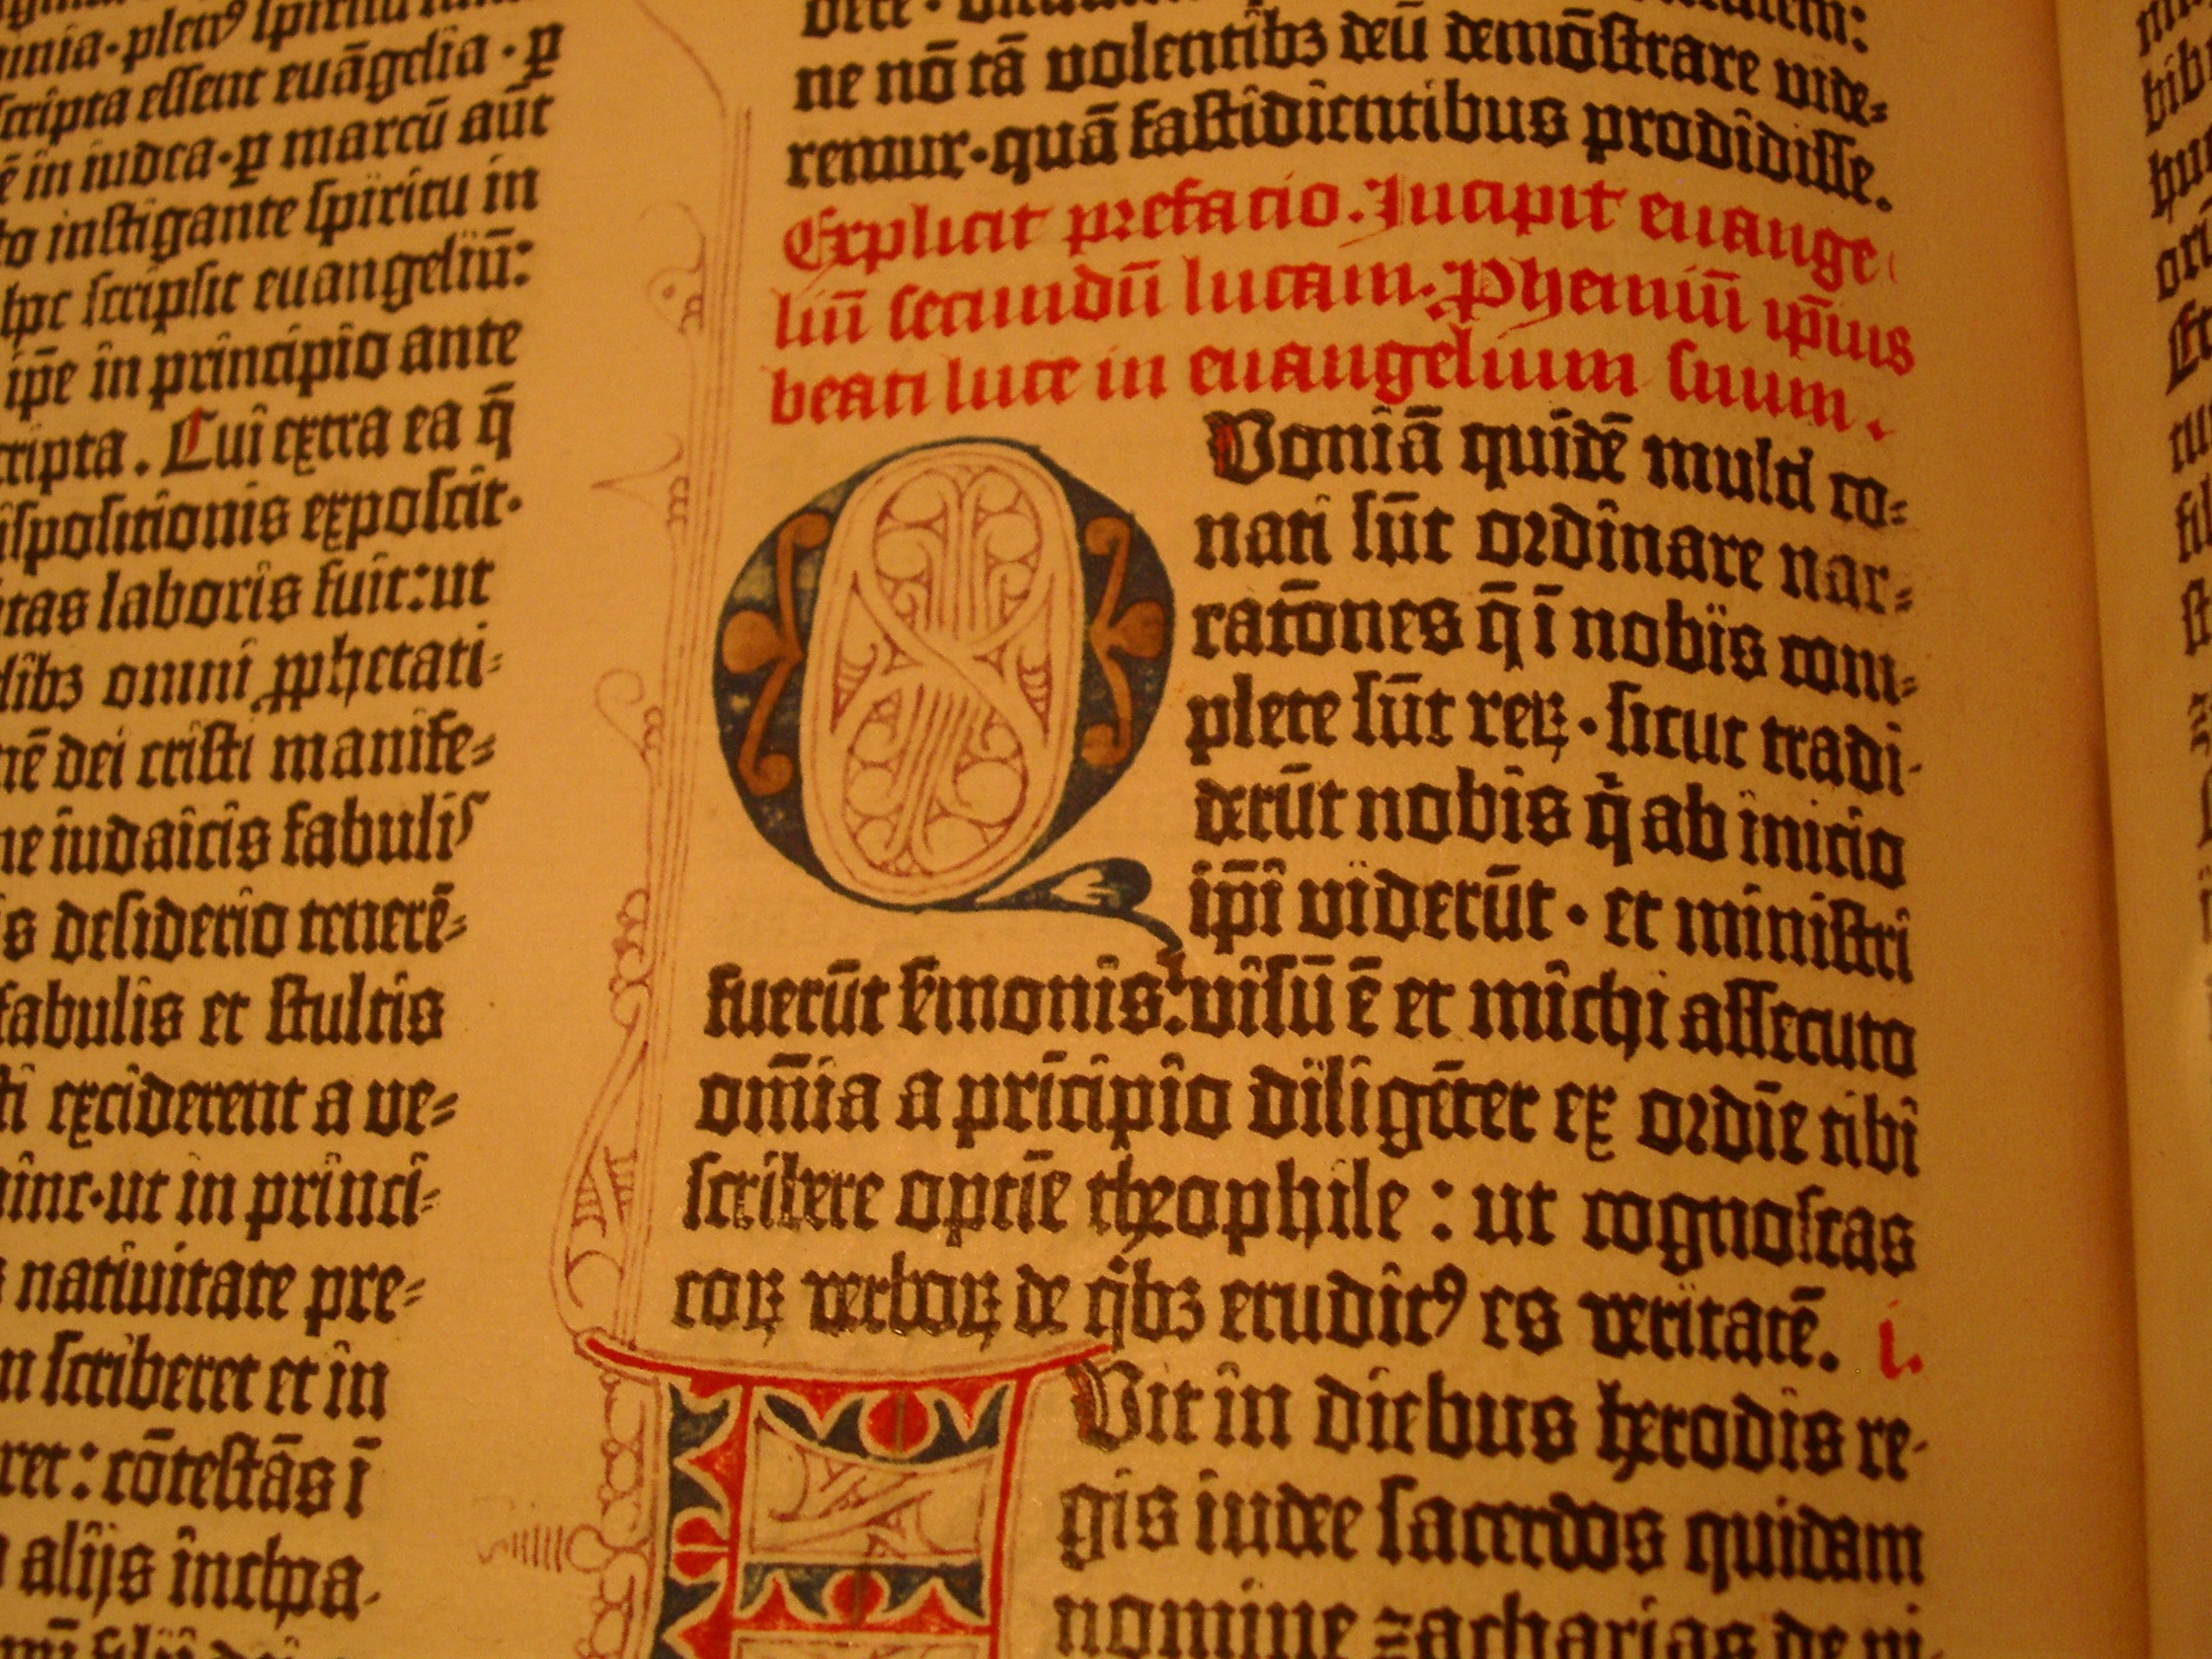 scripta essent euāgelia · ꝑ
ē in iudea · ꝑ marcū aūt
instigante spiritu in
scripsit euangeliū:
ip̄e in principio ante
Cui extra ea q̄
exposcit ·
laboris fuit: ut
omni ꝓphetati-
dei cristi manife-
iudaicis fabulis
desiderio tenerē-
fabulis et stultis
exciderent a ve-
ut in princi-
natiuitate pre-
scriberet et in
cōtestās ī
alijs inchoa-
ne nō tā volentibꝫ deū demōstrare vide-
remur · quā fastidientibus prodidisse.
Explicit prefacio. Incipit euange
liū secundū lucam. Phemiū ip̄ius
beati luce in euangelium suum.
Quoniā quidē multi co-
nati sūt ordinare nar-
ratōnes q̄ ī nobis com-
plete sūt reꝝ · sicut tradi-
derūt nobis q̄ ab inicio
ip̄i viderūt · et ministri
fuerūt s̄monis: visū ē et michi assecuto
om̄ia a prīcipio diligēter ex ordīe tibi
scribere optīe theophile : ut cognoscas
eoꝝ verboꝝ de qͥbꝫ eruditꝰ es veritatē. i.
Fuit in diebus herodis re-
gis iudee sacerdos quidam
nomine zacharias de vi-